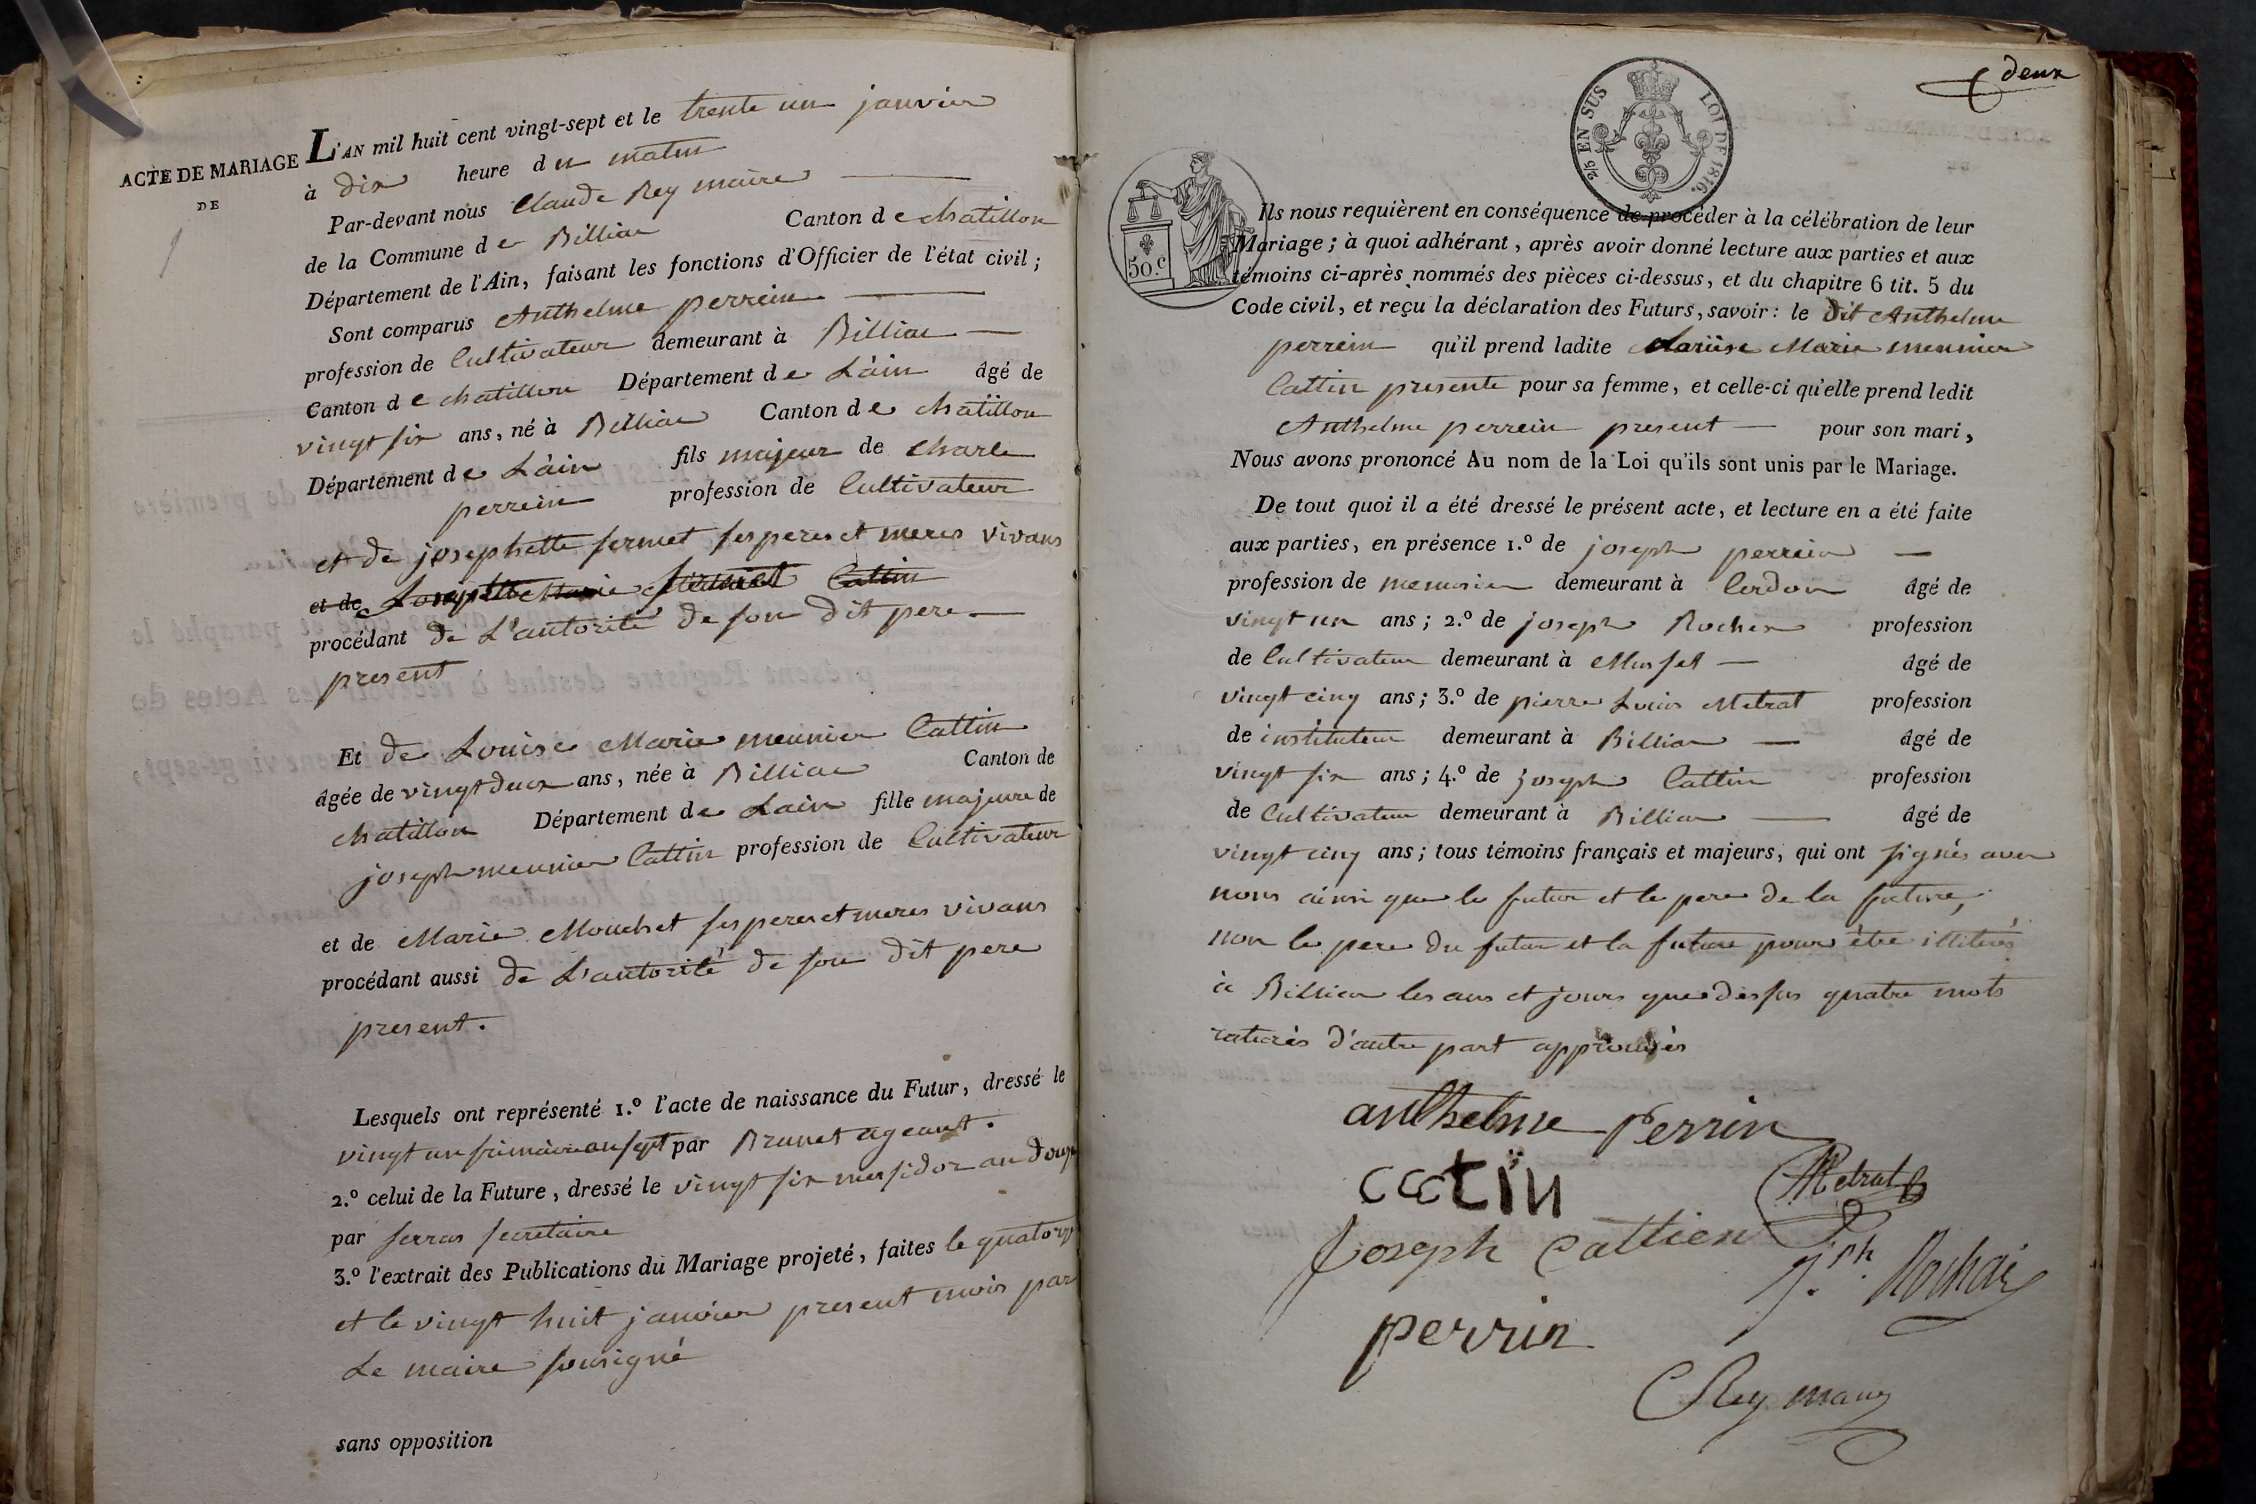 ACTE DE MARIAGE
DE
1
L'AN mil huit cent vingt-sept et le trente un janvier
à dix heure du matin
Par-devant nous Claude Rey maire
de la Commune de Billiat Canton de chatillon
Département de l'Ain, faisant les fonctions d'Officier de l'état civil ;
Sont comparus Anthelme perrein
profession de Cultivateur demeurant à Billiat
Canton de chatillon Département de L'ain âgé de
vingt six ans, né à Billiat Canton de chatillon
Département de L'ain fils majeur de Charle
perrein profession de Cultivateur
et de josephette fermet ses peres et meres vivans
et de Cattin
procédant de L'autorité de son dit pere
present
Et de Louise Marie meunier Cattin
âgée de vingt deux ans, née à Billiat Canton de
chatillon Département de Lain fille majeure de
joseph meunier Cattin profession de Cultivateur
et de Marie Mouchet ses peres et meres vivans
procédant aussi de L'autorité de son dit pere
present.
Lesquels ont représenté 1.º l'acte de naissance du Futur, dressé le
vingt un frimaire an sept par Brunet ageant.
2.º celui de la Future, dressé le vingt six messidor an douze
par ferras secretaire
3.º l'extrait des Publications du Mariage projeté, faites le quatorze
et le vingt huit janvier present mois par
Le maire sousigné
sans opposition
deux
2/5 EN SUS LOI DE 1816.
50.c
Ils nous requièrent en conséquence de procéder à la célébration de leur
Mariage ; à quoi adhérant, après avoir donné lecture aux parties et aux
témoins ci-après nommés des pièces ci-dessus, et du chapitre 6 tit. 5 du
Code civil, et reçu la déclaration des Futurs, savoir : le dit Anthelme
perrein qu'il prend ladite Marie meunier
Cattin presente pour sa femme, et celle-ci qu'elle prend ledit
Anthelme perrein present pour son mari,
Nous avons prononcé Au nom de la Loi qu'ils sont unis par le Mariage.
De tout quoi il a été dressé le présent acte, et lecture en a été faite
aux parties, en présence 1.º de joseph perrein
profession de menusier demeurant à Cordon âgé de
vingt un ans ; 2.º de joseph Rochex profession
de Cultivateur demeurant à Mussel âgé de
vingt cinq ans ; 3.º de pierre Louis Metrat profession
de instituteur demeurant à Billiat âgé de
vingt six ans ; 4.º de joseph Cattin profession
de Cultivateur demeurant à Billiat âgé de
vingt cinq ans ; tous témoins français et majeurs, qui ont signés avec
nous ainsi que le futur et le pere de la future,
non le pere du futur et la future pour être illiterés
à Billiat les ans et jours que dessus quatre mots
raturés d'autre part approuvés
anthelme Perrin
cattin
Metrat
Joseph Cattien
J.ph Rochaix
perrin
Rey maire